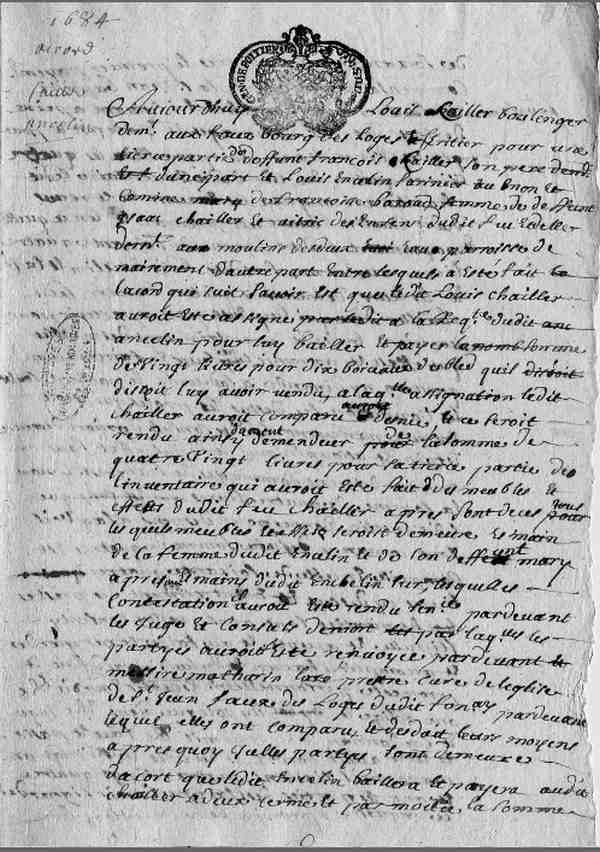 1684
acord
Aujourdhuy Louis chailler boulenger
dem.t aux faux bourg des Loges heritier pour une
tierce partie de deffunt francois chailler son pere
dune part et Louis Encelin farinier au nom et
comme mary de francoise baraud femme de deffunt
Isaac chailler Et des Enfens dudit feu chailler
dem.t aux moulins des deux eaux parroisse de
mairement dautre part Entre lesquels a Esté fait
lacord qui suit Savoir Est que ledit Louis chailler
auroit Esté assigne a la Req.te dudit
ancelin pour luy bailler et payer la somme
de Vingt livres pour dix boiceaux de bled quil
disoit luy avoir vendu, a laq.lle assignation ledit
chailler auroit comparu et denié et ce seroit
rendu ainsy demendeur de la somme de
quatre Vingt livres pour sa tierce partie de
linventaire qui auroit Esté fait des meubles et
effects dudit feu chailler apres son deces tous
lesquels meubles et effects seroist demeuré Es main
de la femme dudit Encelin et de son deffeunt mary
a present Es mains dudit Encelin sur lesquelles
Contestation auroit Esté rendu sen.ce pardevant
les Juge et Consuls par laq.lle les
partyes auroist Esté renvoyee pardevant
messire mathurin prestre Curé de leglise
de S.t Jean faux des Loges dudit fonay pardevant
lequel elles ont comparu et desduit leurs moyens
apres quoy Icelles partyes sont demeuré
dacort que ledit Encelin baillera et payera audit
chailler a deux terme et par moitié la somme